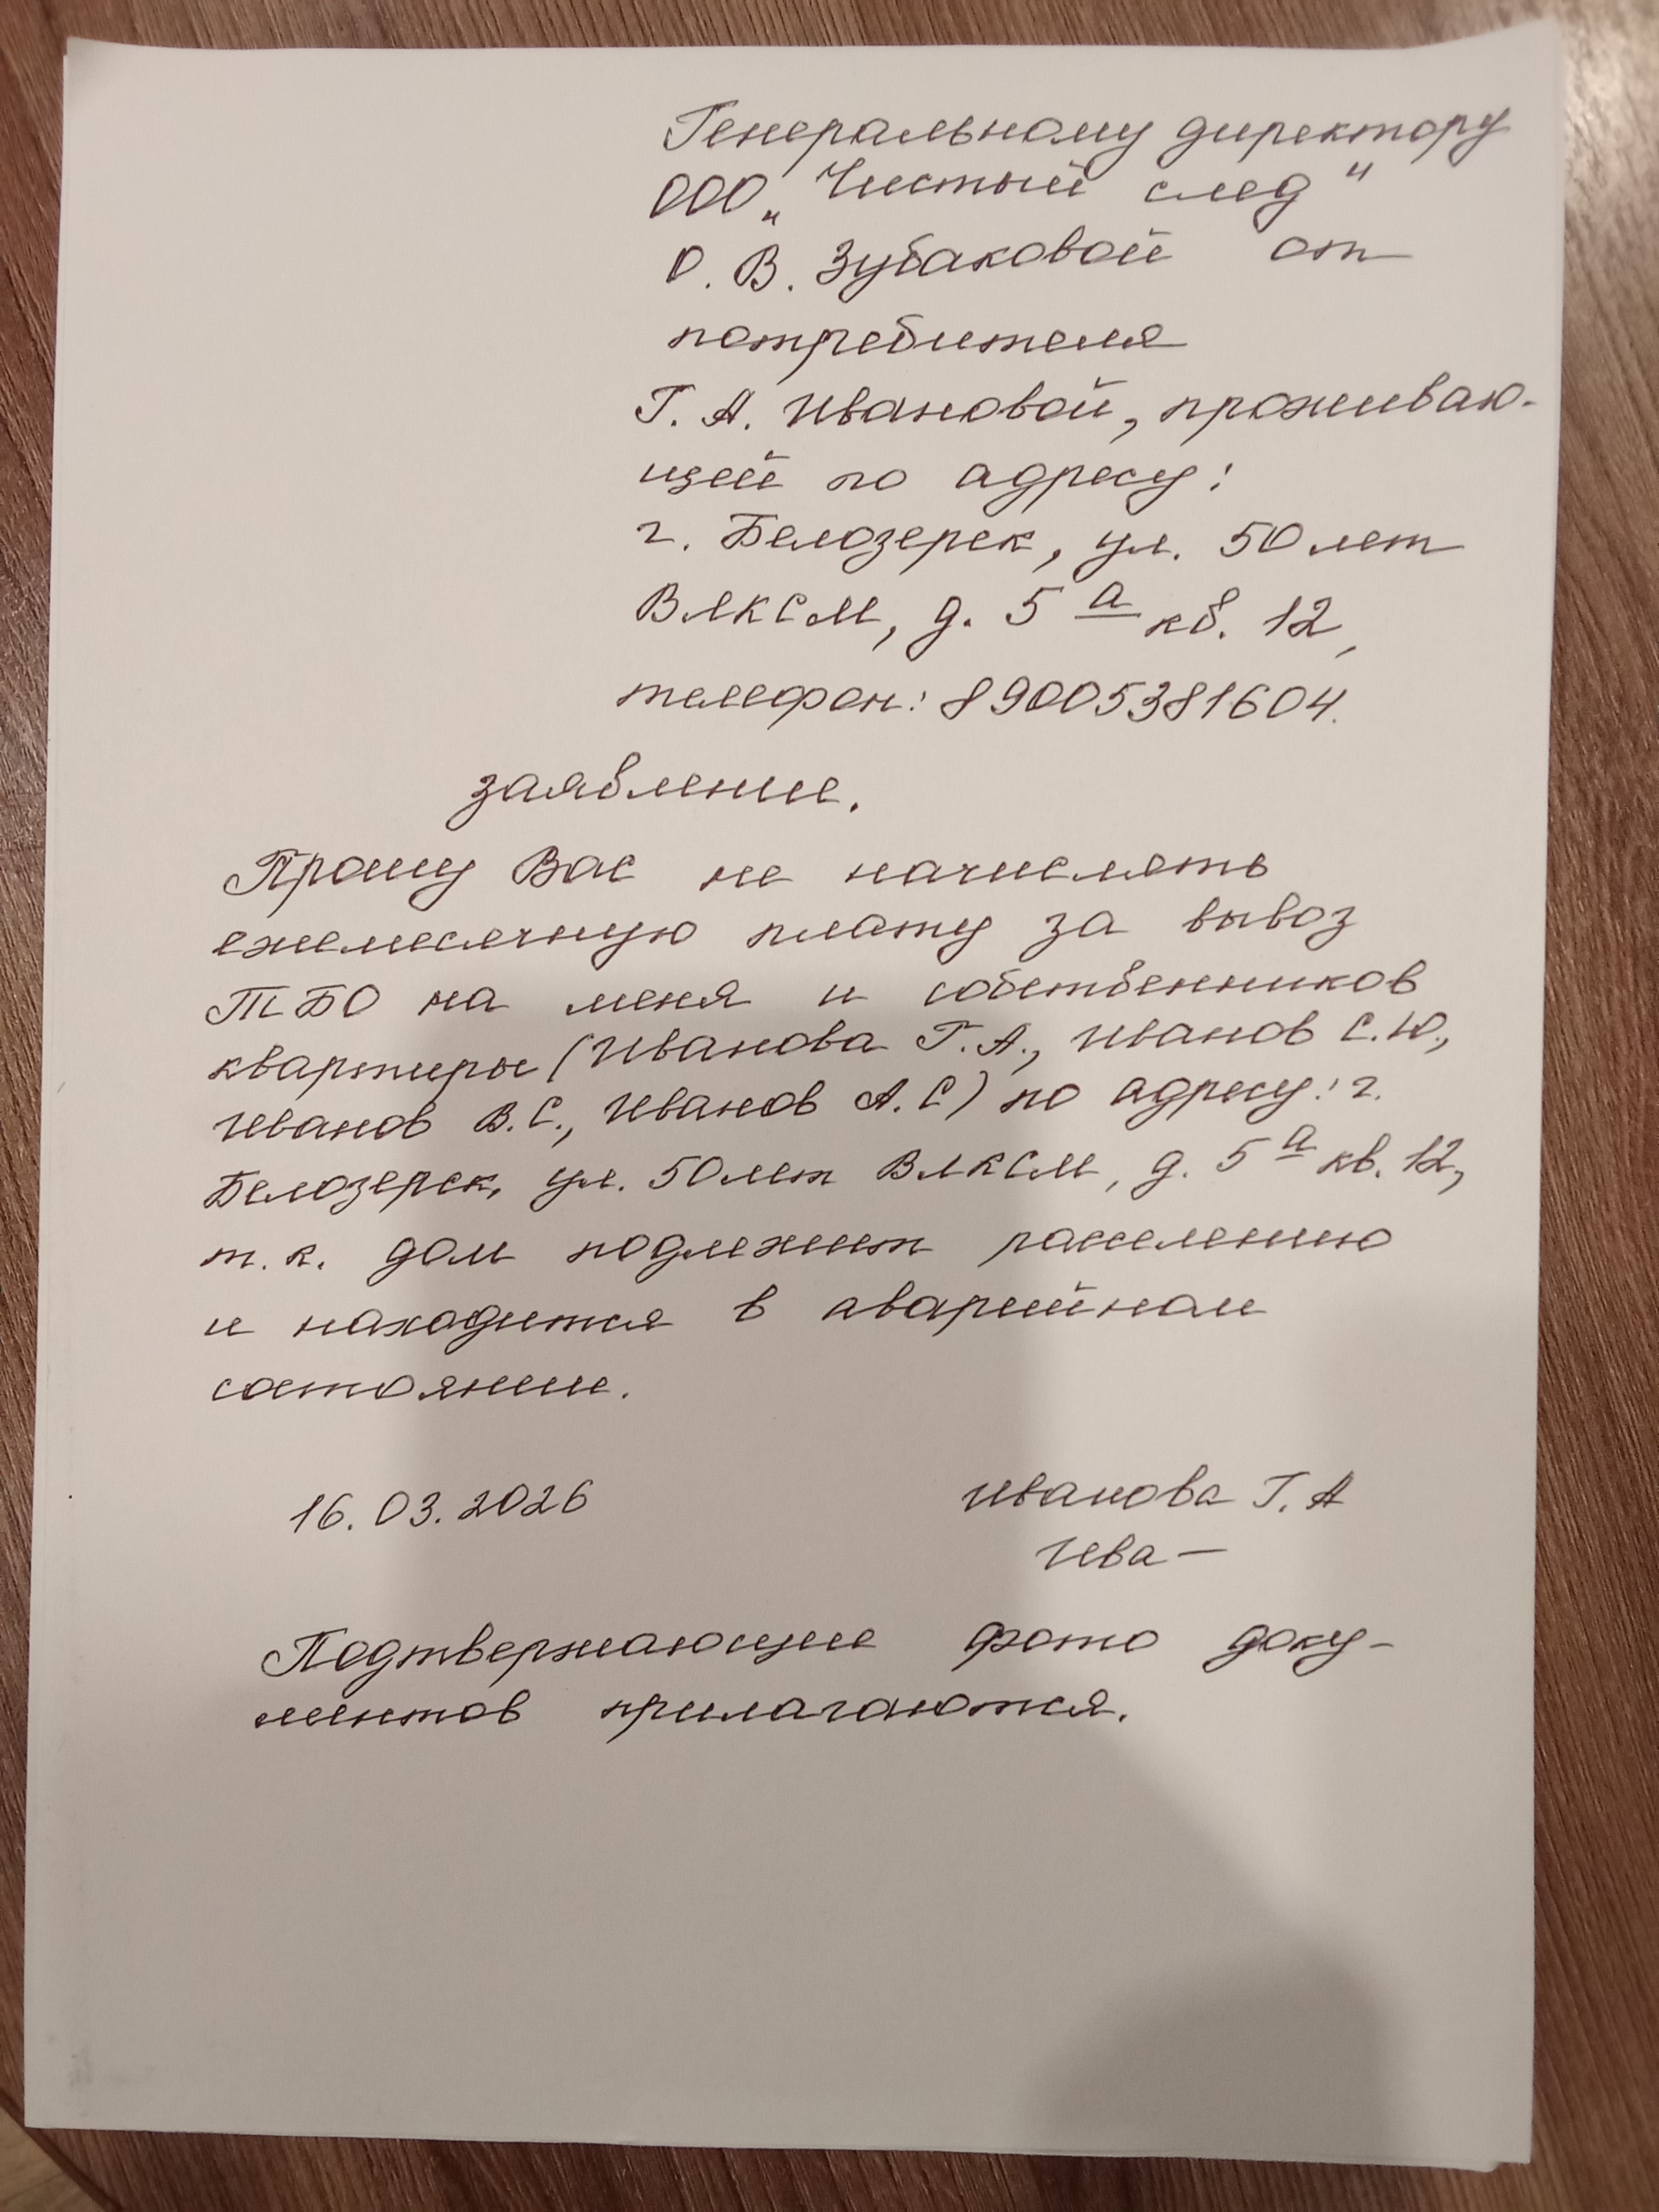 Генеральному директору
ООО „Чистый след"
О. В. Зубаковой от
потребителя
Г. А. Ивановой, проживаю-
щей по адресу:
г. Белозерск, ул. 50 лет
ВЛКСМ, д. 5 а кв. 12,
телефон: 89005381604.
заявление.
Прошу Вас не начислять
ежемесячную плату за вывоз
ТБО на меня и собственников
квартиры (Иванова Г. А., Иванов С. Ю.,
Иванов В. С., Иванов А. С) по адресу: г.
Белозерск, ул. 50 лет ВЛКСМ, д. 5 а кв. 12,
т. к. дом подлежит расселению
и находится в аварийном
состоянии.
16. 03. 2026 Иванова Г. А
Ива—
Подтверждающие фото доку-
ментов прилагаются.